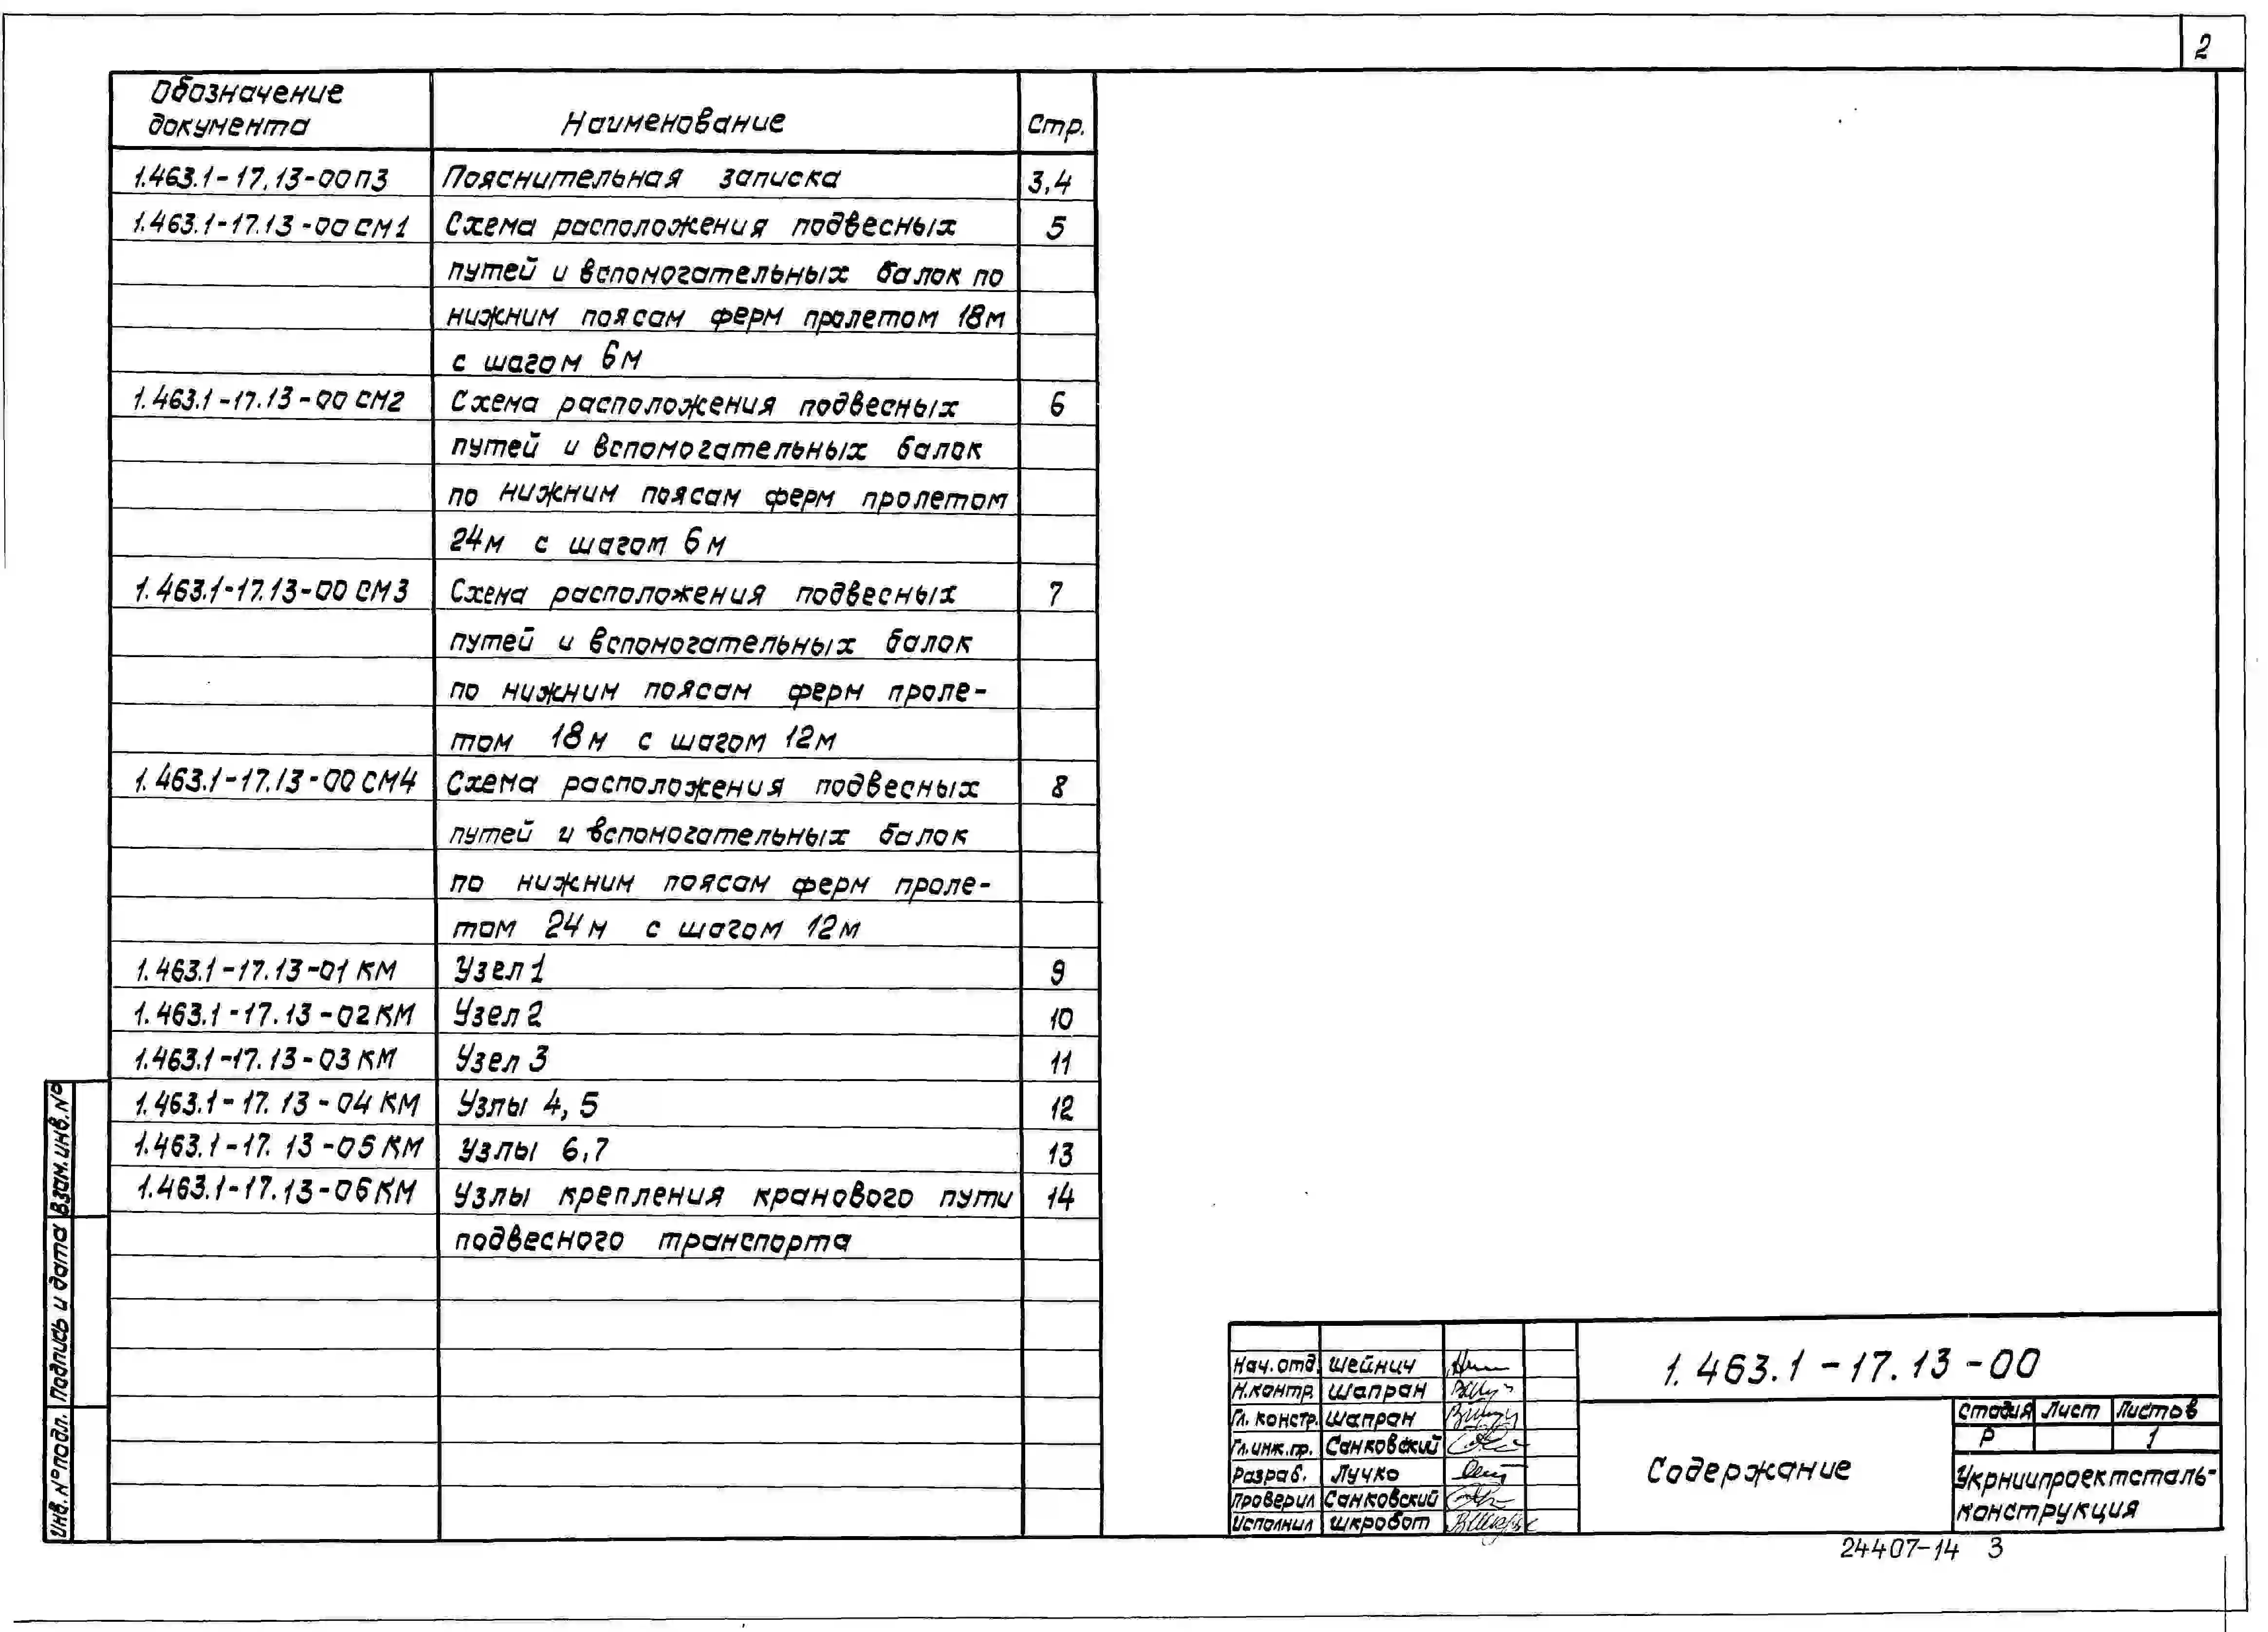 2
Обозначение документа Наименование Стр.
1.463.1-17.13-00ПЗ Пояснительная записка 3,4
1.463.1-17.13-00СМ1 Схема расположения подвесных 5
путей и вспомогательных балок по
нижним поясам ферм пролетом 18м
с шагом 6м
1.463.1-17.13-00СМ2 Схема расположения подвесных 6
путей и вспомогательных балок
по нижним поясам ферм пролетом
24м с шагом 6м
1.463.1-17.13-00СМ3 Схема расположения подвесных 7
путей и вспомогательных балок
по нижним поясам ферм проле-
том 18м с шагом 12м
1.463.1-17.13-00СМ4 Схема расположения подвесных 8
путей и вспомогательных балок
по нижним поясам ферм проле-
том 24м с шагом 12м
1.463.1-17.13-01КМ Узел 1 9
1.463.1-17.13-02КМ Узел 2 10
1.463.1-17.13-03КМ Узел 3 11
1.463.1-17.13-04КМ Узлы 4, 5 12
1.463.1-17.13-05КМ Узлы 6,7 13
1.463.1-17.13-06КМ Узлы крепления кранового пути 14
подвесного транспорта
Взам.инв.№
Подпись и дата
Инв.№подл.
Нач.отд. Шейнич
Н.контр. Шапран
Гл. констр. Шапран
Гл.инж.пр. Санковский
Разраб. Лучко
Проверил Санковский
Исполнил Шкробот
1.463.1-17.13-00
Содержание
Стадия Лист Листов
Р 1
Укрниипроектсталь-
конструкция
24407-14 3